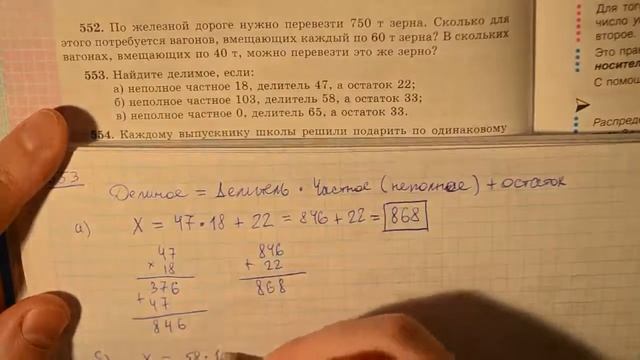 552. По железной дороге нужно перевезти 750 т зерна. Сколько для
этого потребуется вагонов, вмещающих каждый по 60 т зерна? В скольких
вагонах, вмещающих по 40 т, можно перевезти это же зерно?
553. Найдите делимое, если:
а) неполное частное 18, делитель 47, а остаток 22;
б) неполное частное 103, делитель 58, а остаток 33;
в) неполное частное 0, делитель 65, а остаток 33.
554. Каждому выпускнику школы решили подарить по одинаковому
Для того
число у
второе.
Это прав
носител
С помощ
Распреде
53
Делимое = Делитель · Частное (неполное) + остаток
а) X = 47 · 18 + 22 = 846 + 22 = 868
47
× 18
376
+ 47
846
846
+ 22
868
б) X = 58 · 10